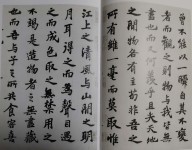 曾不能以一瞬自其不變
者而觀之則物與我皆無
盡也而又何羨乎且夫天地
之間物各有主苟非吾之
所有雖一毫而莫取惟
江上之清風與山間之明
月耳得之而為聲目遇
之而成色取之無禁用之
不竭是造物者之無盡藏
也而吾與子之所共食客喜